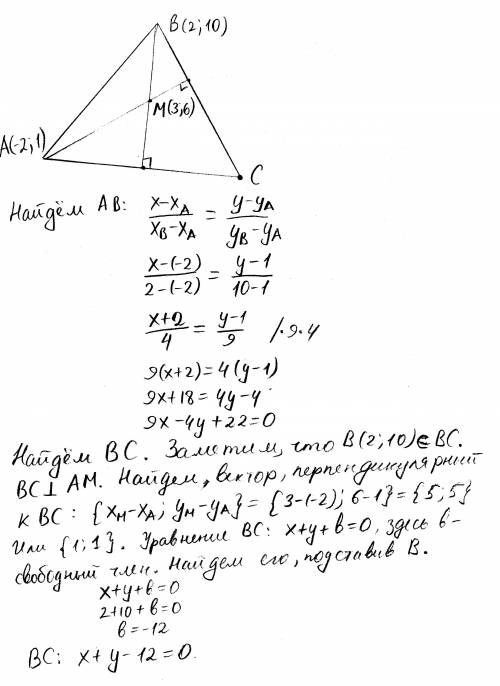 B(2;10)
M(3;6)
A(-2;1)
C
Найдём AB: (x-xA)/(xB-xA) = (y-yA)/(yB-yA)
(x-(-2))/(2-(-2)) = (y-1)/(10-1)
(x+2)/4 = (y-1)/9 /·9·4
9(x+2)=4(y-1)
9x+18=4y-4
9x-4y+22=0
Найдём BC. Заметим, что B(2;10)∈BC.
BC⊥AM. Найдем, вектор, перпендикулярный
к BC: {xM-xA; yM-yA}={3-(-2); 6-1}={5;5}
или {1;1}. Уравнение BC: x+y+b=0, здесь b-
свободный член. Найдем его, подставив B.
x+y+b=0
2+10+b=0
b=-12
BC: x+y-12=0.